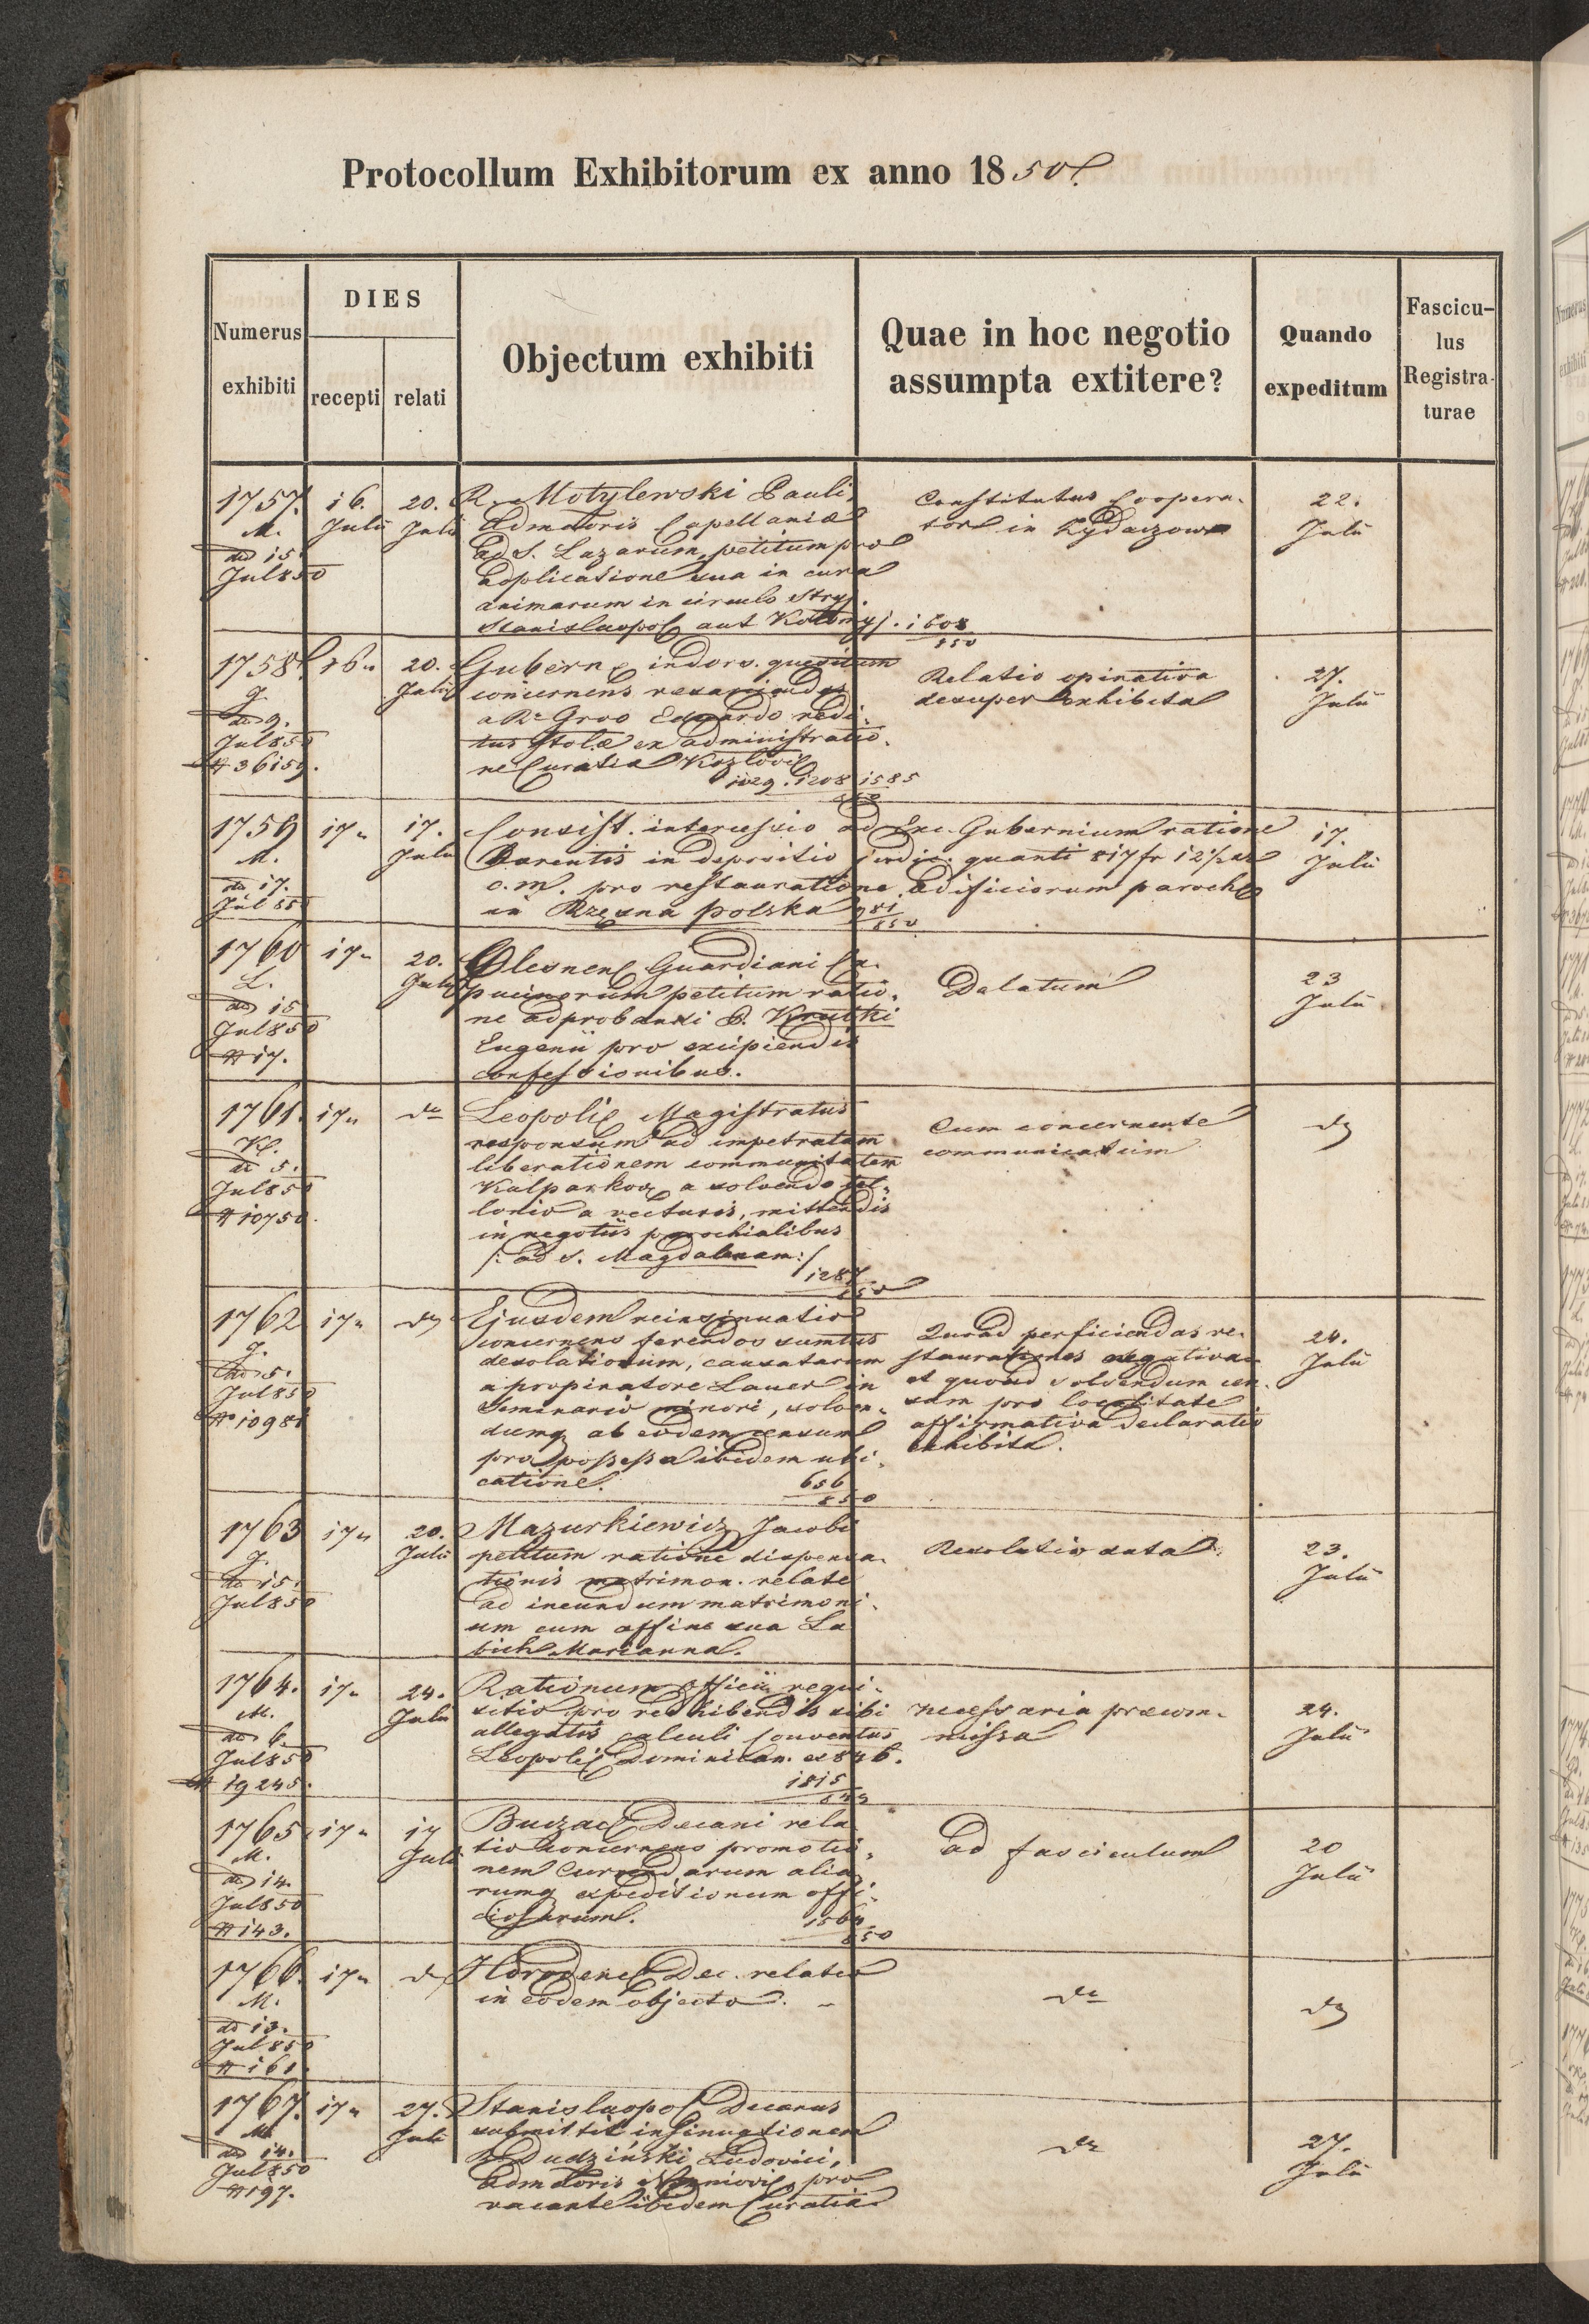 Protocollum Exhibitorum ex anno 1850.
Numerus exhibiti
DIES
recepti
relati
Objectum exhibiti
Quae in hoc negotio assumpta extitere?
Quando expeditum
Fascicu-
lus
Registra-
turae
1757. 16. Julii 20. Julii
M.
dd 15.
Jul 850
R. Motylewski Pauli,
Admatoris Capellaniæ
ad S. Lazarum, petitum pro
applicatione sua in cura
animarum in circulo Stryj.
Stanislaopol aut Kolomyj. 1608
850
Constitutus Coopera-
tor in Zydaczow
22.
Julii
1758. 16" 20. Julii
g.
dd 9.
Jul 850
# 36159.
Gubern indors. quesitum
concernens
a R. Gros Eduardo redi-
tus stolæ ex administratio-
ne Curatia Kozlovi
1029. 1208 1585
850
Relatio opinativa
desuper exhibita
27.
Julii
1759 17" 17. Julii
M.
dd 17.
Jul 850
Consist. intercessio ad Exc. Gubernium ratione
parentis in depositio judic. quanti 817 fr 12 1/2 xr
c. m. pro restauratione ædificiorum paroch
in Rzęsna polska 981
850
17.
Julii
1760 17" 20. Julii
L.
dd 15
Jul 850
# 17.
Olesnen Guardiani Ca-
pucinorum petitum ratio-
ne adprobandi P. Krutki
Eugenii pro excipiendis
confessionibus.
Delatum
23
Julii
1761. 17" do
Kl.
dd 5.
Jul 850
# 10750.
Leopoli Magistratus
responsum ad impetratam
liberationem communitatem
Kulparkov a solvendo tel-
lonio a vecturis, mittendis
in negotiis parochialibus
/: ad S. Magdalenam :/
1287
850
Cum concernente
communicatum
do
1762 17" do
g.
dd 5.
Jul 850
# 10981
Ejusdem reinsinuatio
concernens ferendos sumtus
desolationum, causatarum
a propinatore Lauer in
Seminario minori, solven-
dumq ab eodem censum
pro possessa ibidem ubi-
catione. 656
850
Quoad perficiendas re-
staurationes negativa
et quoad solvendum cen-
sum pro localitate
affirmativa declaratio
exhibita.
24.
Julii
1763 17" 20. Julii
g.
dd 15.
Jul 850
Mazurkiewicz Jacobi
petitum ratione dispensa-
tionis matrimon. relate
ad ineundum matrimoni-
um cum affine sua La
bich Marianna.
Resolutio data.
23.
Julii
1764. 17" 24. Julii
M.
dd 6.
Jul 850
# 19245.
Rationum officii requi-
sitio pro redhibendis sibi
allegatis calculi Conventus
Leopoli Dominican. ex 846.
1815
849
necessaria præcom-
missa
24.
Julii
1765 17" 17 Julii
M.
dd 14.
Jul 850
# 143.
Buczac Decani rela
tio concernens promotio-
nem Currendarum alia-
rumq expeditionum offi-
ciosarum. 1564
850
ad fasciculum
20
Julii
1766. 17" do
M.
dd 13.
Jul 850
# 161.
Horodenc Dec. relatio
in eodem objecto. -
do
do
1767. 17" 27. Juli
M.
dd 14.
Jul 850
# 197.
Stanislaopol Decanus
submittit insinuationem
R. Dudziński Ludovici,
Admatoris pro
vacante ibidem Curatia
do
27.
Julii